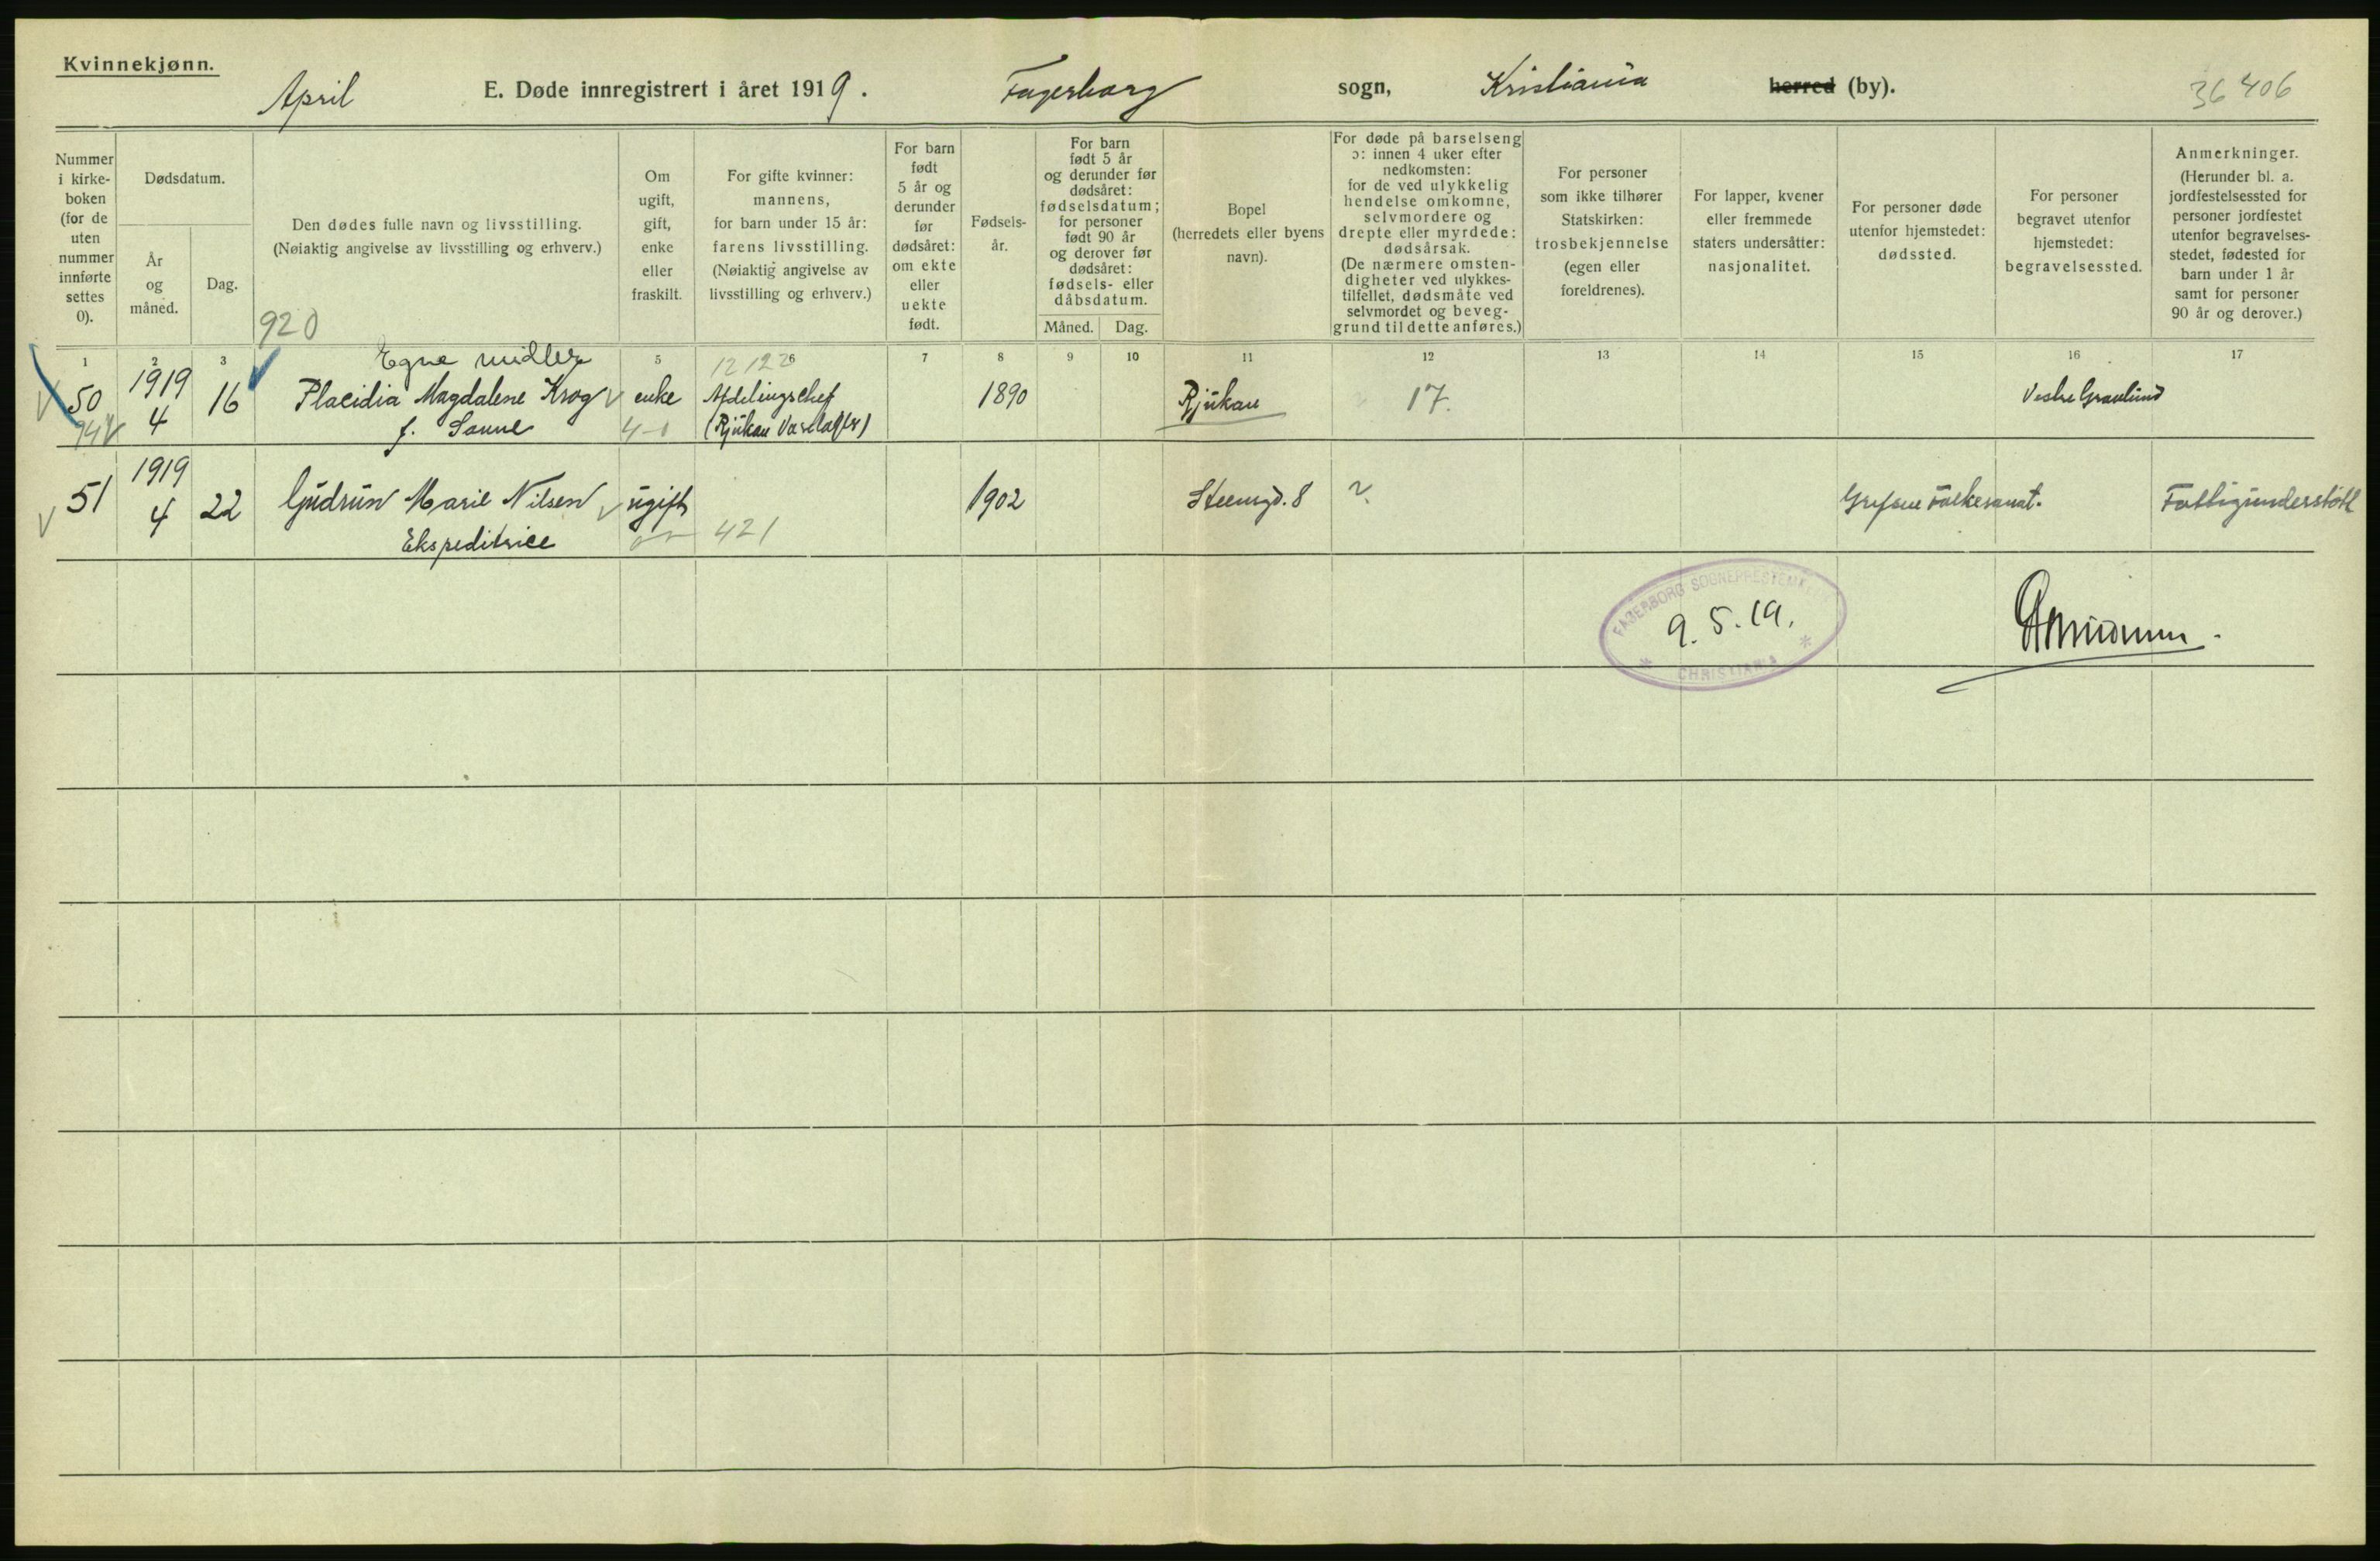 Kvinnekjønn.
April E. Døde innregistrert i året 1919. Fagerborg sogn, Kristiania herred (by). 36 406
Nummer i kirke-boken (for de uten nummer innførte settes 0).
Dødsdatum.
År og måned.
Dag.
Den dødes fulle navn og livsstilling.
(Nøiaktig angivelse av livsstilling og erhverv.)
920
Om ugift, gift, enke eller fraskilt.
For gifte kvinner: mannens, for barn under 15 år: farens livsstilling.
(Nøiaktig angivelse av livsstilling og erhverv.)
For barn født 5 år og derunder før dødsåret: om ekte eller uekte født.
Fødsels-år.
For barn født 5 år og derunder før dødsåret: fødselsdatum; for personer født 90 år og derover før dødsåret: fødsels- eller dåbsdatum.
Måned. Dag.
Bopel (herredets eller byens navn).
For døde på barselseng ɔ: innen 4 uker efter nedkomsten: for de ved ulykkelig hendelse omkomne, selvmordere og drepte eller myrdede: dødsårsak.
(De nærmere omsten-digheter ved ulykkes-tilfellet, dødsmåte ved selvmordet og beveg-grund til dette anføres.)
For personer som ikke tilhører Statskirken: trosbekjennelse (egen eller foreldrenes).
For lapper, kvener eller fremmede staters undersåtter: nasjonalitet.
For personer døde utenfor hjemstedet: dødssted.
For personer begravet utenfor hjemstedet: begravelsessted.
Anmerkninger.
(Herunder bl. a. jordfestelsessted for personer jordfestet utenfor begravelses-stedet, fødested for barn under 1 år samt for personer 90 år og derover.)
1 2 3 5 6 7 8 9 10 11 12 13 14 15 16 17
Egne midler 12 12 2
50 1919 4 16 Placidia Magdalene Krog enke Afdelingschef 1890 Rjukan 17. Vestre Gravlund
f. Sanne 4-0 (Rjukan
51 1919 4 22 Gudrun Marie Nilsen ugift 1902 Steensgd. 8 ? Grefsen Folkesanat. Fattigunderstøtt
Ekspeditrice 421
FAGERBORG SOGNEPRESTEMB
9. 5. 19.
CHRISTIANIA